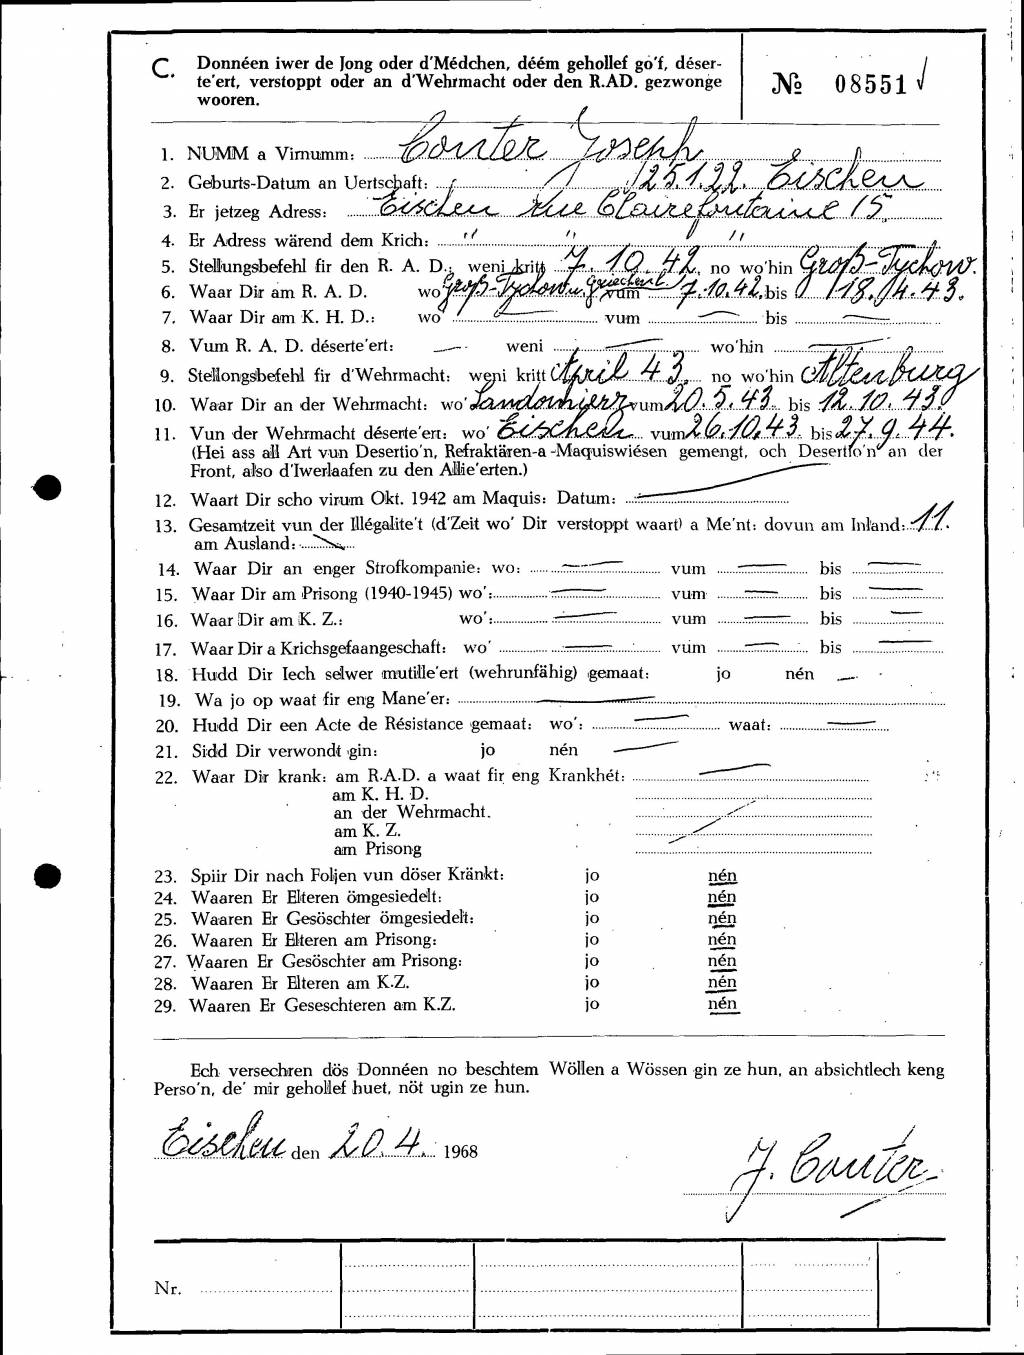 C. Donnéen iwer de Jong oder d'Médchen, déém gehollef go'f, déser-
te'ert, verstoppt oder an d'Wehrmacht oder den R.AD. gezwonge
wooren.
№ 08551
1. NUMM a Virnumm: Conter Joseph
2. Geburts-Datum an Uertschaft: 25.1.22. Eischen
3. Er jetzeg Adress: Eischen Rue Clairefontaine 15.
4. Er Adress wärend dem Krich: " " "
5. Stellungsbefehl fir den R. A. D.: weni kritt 7.10.42. no wo'hin Groß-Tychow.
6. Waar Dir am R. A. D. wo' Groß-Tychow u. Griechenl. vum 7.10.42. bis 18.4.43.
7. Waar Dir am K. H. D.: wo' — vum — bis —
8. Vum R. A. D. déserte'ert: — weni — wo'hin —
9. Stellongsbefehl fir d'Wehrmacht: weni kritt April 43. no wo'hin Altenburg
10. Waar Dir an der Wehrmacht: wo' Sandomierz vum 20.5.43. bis 12.10.43.
11. Vun der Wehrmacht déserte'ert: wo' Eischen vum 26.10.43. bis 27.9.44.
(Hei ass all Art vun Desertio'n, Refraktären-a-Maquiswiésen gemengt, och Desertio'n an der
Front, also d'Iwerlaafen zu den Allie'erten.)
12. Waart Dir scho virum Okt. 1942 am Maquis: Datum: —
13. Gesamtzeit vun der Illégalite't (d'Zeit wo' Dir verstoppt waart) a Me'nt: dovun am Inland: 11.
am Ausland: —
14. Waar Dir an enger Strofkompanie: wo: — vum — bis —
15. Waar Dir am Prisong (1940-1945) wo': — vum — bis —
16. Waar Dir am K. Z.: wo': — vum — bis —
17. Waar Dir a Krichsgefaangeschaft: wo' — vum — bis —
18. Hudd Dir Iech selwer mutille'ert (wehrunfähig) gemaat: jo nén —
19. Wa jo op waat fir eng Mane'er: —
20. Hudd Dir een Acte de Résistance gemaat: wo': — waat: —
21. Sidd Dir verwondt gin: jo nén —
22. Waar Dir krank: am R.A.D. a waat fir eng Krankhét: —
am K. H. D.
an der Wehrmacht.
am K. Z.
am Prisong
23. Spiir Dir nach Foljen vun döser Kränkt: jo nén
24. Waaren Er Elteren ömgesiedelt: jo nén
25. Waaren Er Gesöschter ömgesiedelt: jo nén
26. Waaren Er Elteren am Prisong: jo nén
27. Waaren Er Gesöschter am Prisong: jo nén
28. Waaren Er Elteren am K.Z. jo nén
29. Waaren Er Geseschteren am K.Z. jo nén
Ech versechren dös Donnéen no beschtem Wöllen a Wössen gin ze hun, an absichtlech keng
Perso'n, de' mir gehollef huet, nöt ugin ze hun.
Eischen den 20.4. 1968
J. Conter
Nr.